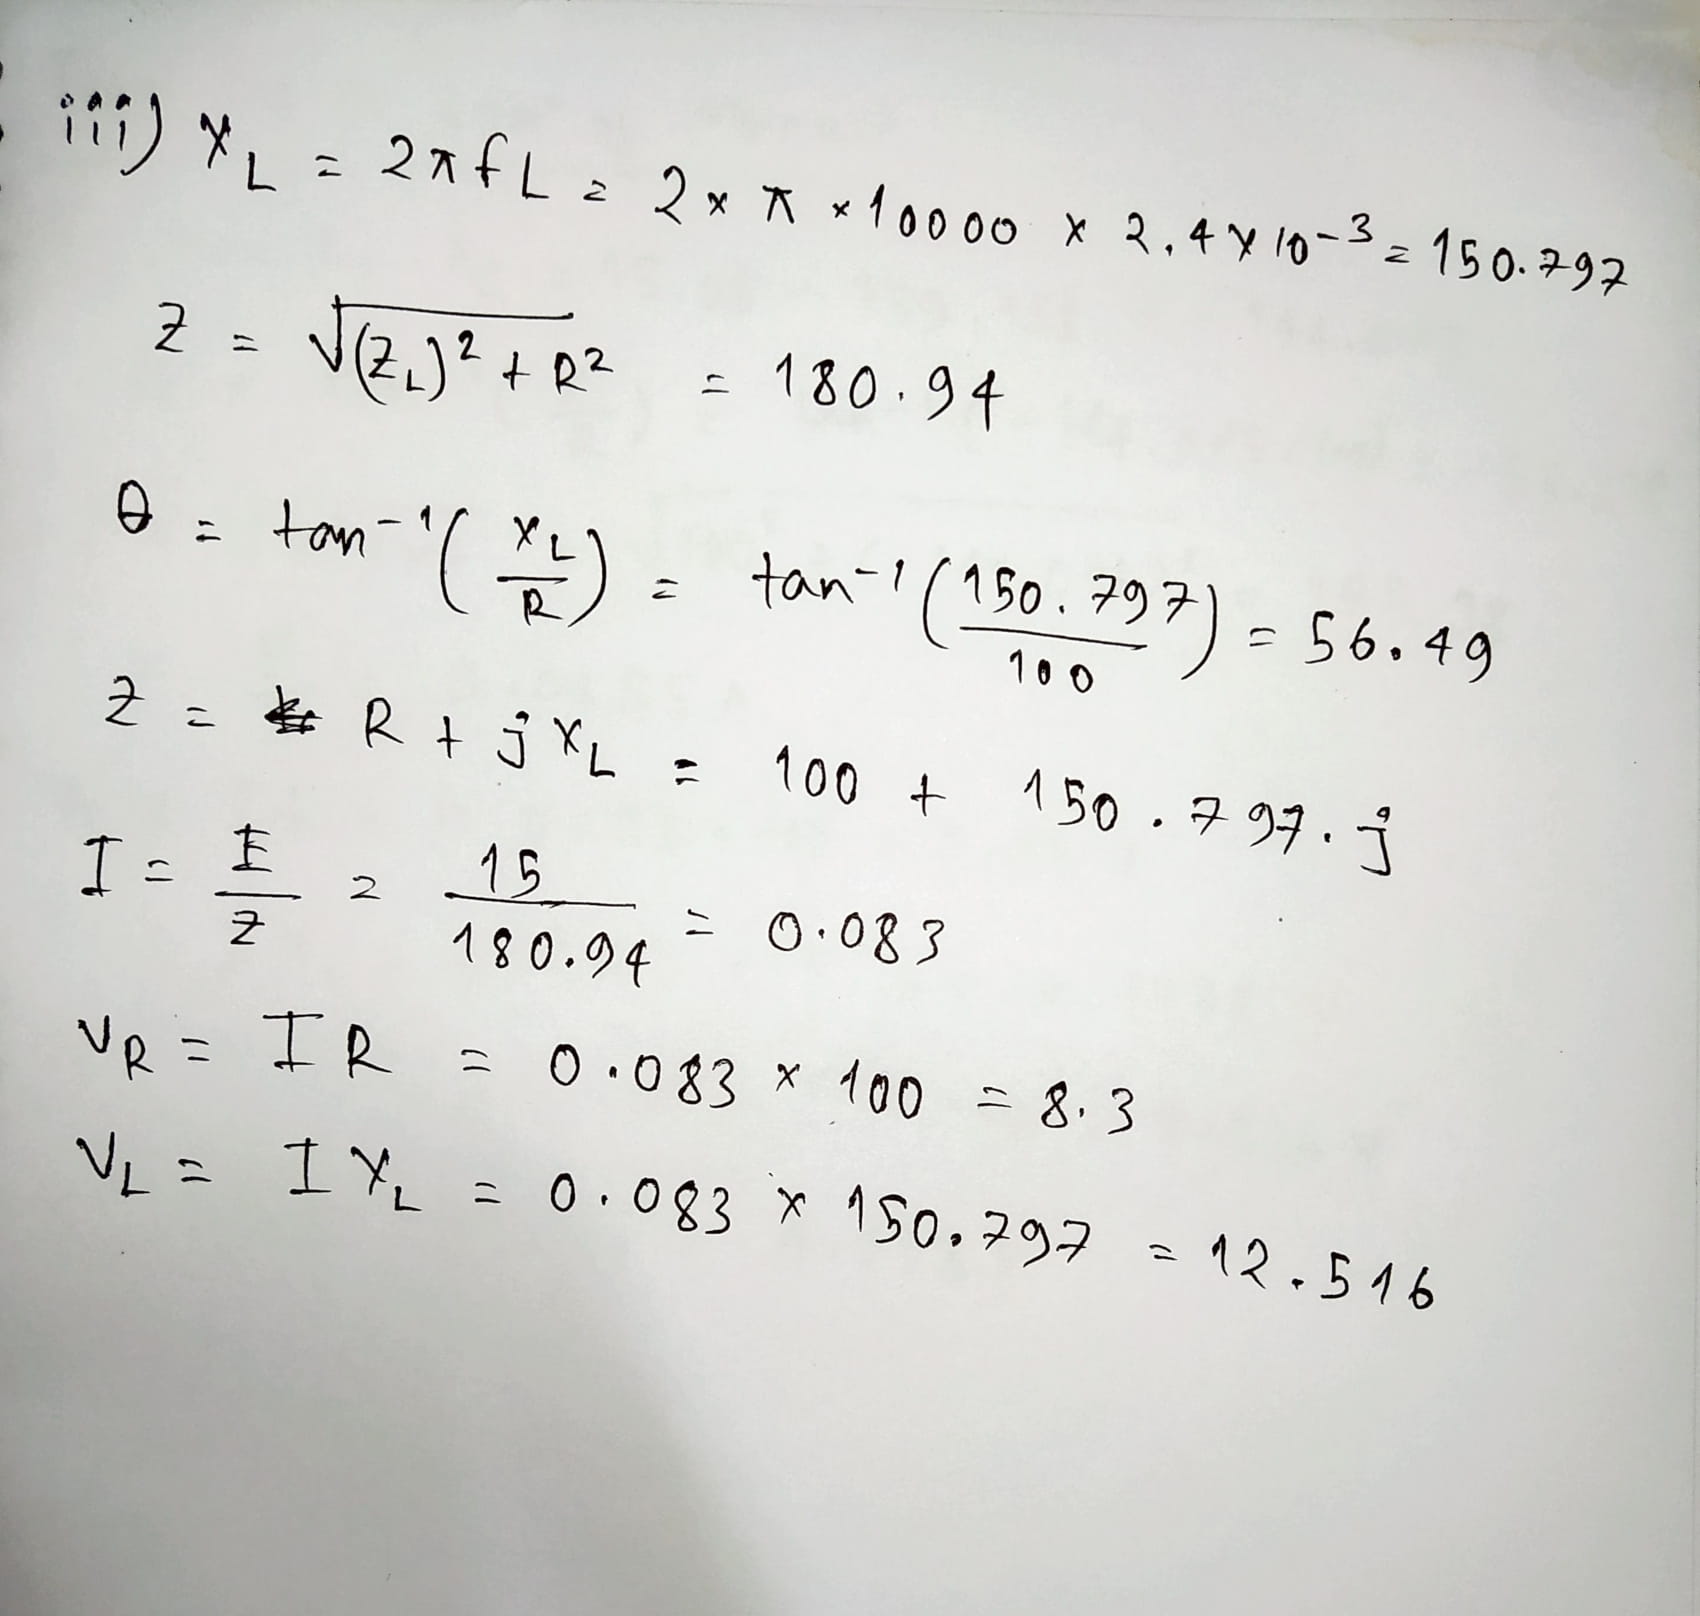 iii) X_L = 2πfL = 2 × π × 10000 × 2.4 × 10^-3 = 150.797
Z = √(Z_L)^2 + R^2 = 180.94
θ = tan^-1 (X_L / R) = tan^-1 (150.797 / 100) = 56.49
Z = R + jX_L = 100 + 150.797.j
I = E / Z = 15 / 180.94 = 0.083
V_R = IR = 0.083 × 100 = 8.3
V_L = I X_L = 0.083 × 150.797 = 12.516